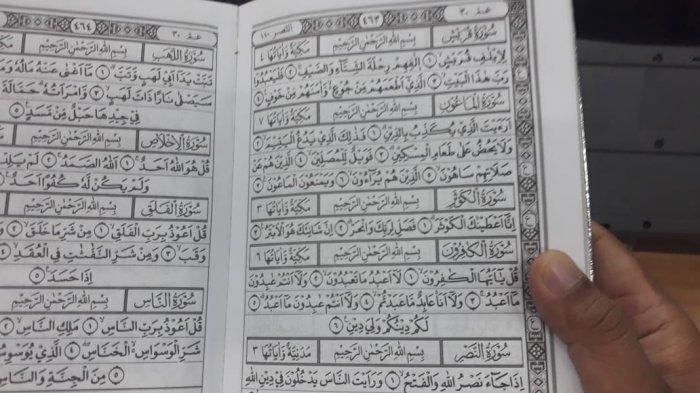 عم ٣٠
٤٦٣
النصر ١١٠
سُورَةُ قُرَيْشٍ
بِسْمِ اللهِ الرَّحْمٰنِ الرَّحِيْمِ
مَكِّيَّةٌ وَاٰيَاتُهَا ٤
لِاِيْلٰفِ قُرَيْشٍ ١ اٖلٰفِهِمْ رِحْلَةَ الشِّتَاۤءِ وَالصَّيْفِ ٢ فَلْيَعْبُدُوْا
رَبَّ هٰذَا الْبَيْتِ ٣ الَّذِيْٓ اَطْعَمَهُمْ مِنْ جُوْعٍ وَاٰمَنَهُمْ مِنْ خَوْفٍ ٤
سُورَةُ الْمَاعُوْنِ
بِسْمِ اللهِ الرَّحْمٰنِ الرَّحِيْمِ
مَكِّيَّةٌ وَاٰيَاتُهَا ٧
اَرَءَيْتَ الَّذِيْ يُكَذِّبُ بِالدِّيْنِ ١ فَذٰلِكَ الَّذِيْ يَدُعُّ الْيَتِيْمَ ٢
وَلَا يَحُضُّ عَلٰى طَعَامِ الْمِسْكِيْنِ ٣ فَوَيْلٌ لِلْمُصَلِّيْنَ ٤ الَّذِيْنَ هُمْ عَنْ
صَلَاتِهِمْ سَاهُوْنَ ٥ الَّذِيْنَ هُمْ يُرَاۤءُوْنَ ٦ وَيَمْنَعُوْنَ الْمَاعُوْنَ ٧
سُورَةُ الْكَوْثَرِ
بِسْمِ اللهِ الرَّحْمٰنِ الرَّحِيْمِ
مَكِّيَّةٌ وَاٰيَاتُهَا ٣
اِنَّآ اَعْطَيْنٰكَ الْكَوْثَرَ ١ فَصَلِّ لِرَبِّكَ وَانْحَرْ ٢ اِنَّ شَانِئَكَ هُوَ الْاَبْتَرُ ٣
سُورَةُ الْكَافِرُوْنَ
بِسْمِ اللهِ الرَّحْمٰنِ الرَّحِيْمِ
مَكِّيَّةٌ وَاٰيَاتُهَا ٦
قُلْ يٰٓاَيُّهَا الْكٰفِرُوْنَ ١ لَآ اَعْبُدُ مَا تَعْبُدُوْنَ ٢ وَلَآ اَنْتُمْ عٰبِدُوْنَ
مَآ اَعْبُدُ ٣ وَلَآ اَنَا۠ عَابِدٌ مَا عَبَدْتُمْ ٤ وَلَآ اَنْتُمْ عٰبِدُوْنَ مَآ اَعْبُدُ ٥
لَكُمْ دِيْنُكُمْ وَلِيَ دِيْنِ ٦
سُورَةُ النَّصْرِ
بِسْمِ اللهِ الرَّحْمٰنِ الرَّحِيْمِ
مَدَنِيَّةٌ وَاٰيَاتُهَا ٣
اِذَا جَاۤءَ نَصْرُ اللهِ وَالْفَتْحُ ١ وَرَاَيْتَ النَّاسَ يَدْخُلُوْنَ فِيْ دِيْنِ اللهِ
عم ٣٠
٤٦٤
سُورَةُ اللَّهَبِ
بِسْمِ اللهِ الرَّحْمٰنِ الرَّحِيْمِ
تَبَّتْ يَدَآ اَبِيْ لَهَبٍ وَتَبَّ ١ مَآ اَغْنٰى عَنْهُ مَالُهٗ
سَيَصْلٰى نَارًا ذَاتَ لَهَبٍ ٣ وَامْرَاَتُهٗ حَمَّالَةَ
فِيْ جِيْدِهَا حَبْلٌ مِنْ مَسَدٍ ٥
سُورَةُ الْاِخْلَاصِ
بِسْمِ اللهِ الرَّحْمٰنِ الرَّحِيْمِ
قُلْ هُوَ اللهُ اَحَدٌ ١ اَللهُ الصَّمَدُ ٢ لَمْ يَلِدْ
وَلَمْ يَكُنْ لَهٗ كُفُوًا اَحَدٌ ٤
سُورَةُ الْفَلَقِ
بِسْمِ اللهِ الرَّحْمٰنِ الرَّحِيْمِ
قُلْ اَعُوْذُ بِرَبِّ الْفَلَقِ ١ مِنْ شَرِّ مَا خَلَقَ ٢
وَقَبَ ٣ وَمِنْ شَرِّ النَّفّٰثٰتِ فِى الْعُقَدِ ٤
اِذَا حَسَدَ ٥
سُورَةُ النَّاسِ
بِسْمِ اللهِ الرَّحْمٰنِ الرَّحِيْمِ
قُلْ اَعُوْذُ بِرَبِّ النَّاسِ ١ مَلِكِ النَّاسِ ٢
شَرِّ الْوَسْوَاسِ الْخَنَّاسِ ٤ الَّذِيْ يُوَسْوِسُ
٥ مِنَ الْجِنَّةِ وَالنَّاسِ